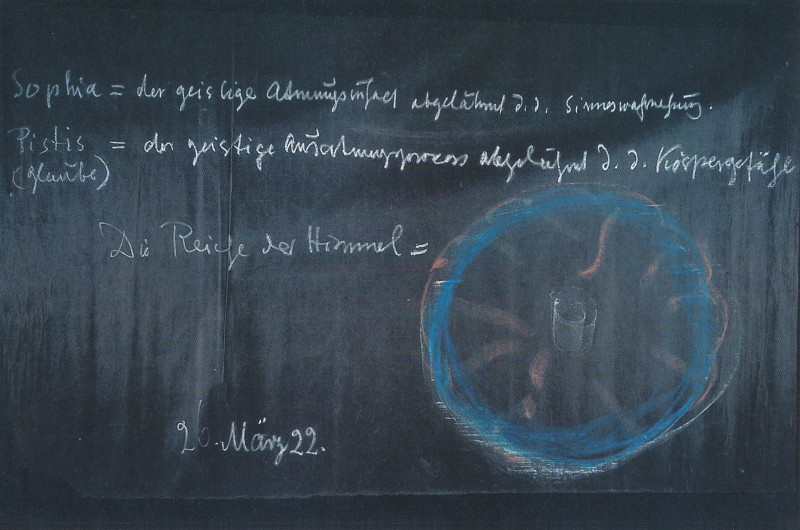 Sophia = der geistige Atmungsinhalt abgelähmt d. d. Sinneswahrnehmung.
Pistis = der geistige Ausatmungsprozess abgelähmt d. d. Körpergefühl
(Glaube)
Die Reiche der Himmel =
26. März 22.